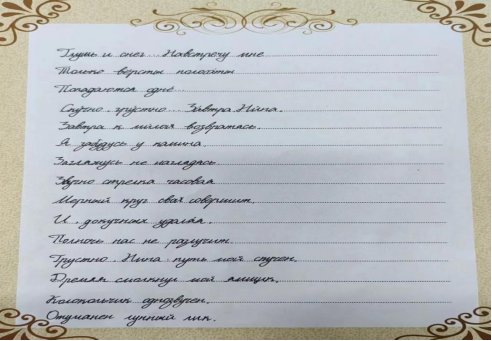 Глушь и снег... Навстречу мне
Только версты полосаты
Попадаются одне...
Скучно, грустно... Завтра, Нина,
Завтра к милой возвратясь,
Я забудусь у камина,
Загляжусь не наглядясь.
Звучно стрелка часовая
Мерный круг свой совершит,
И, докучных удаляя,
Полночь нас не разлучит.
Грустно, Нина: путь мой скучен,
Дремля смолкнул мой ямщик,
Колокольчик однозвучен,
Отуманен лунный лик.